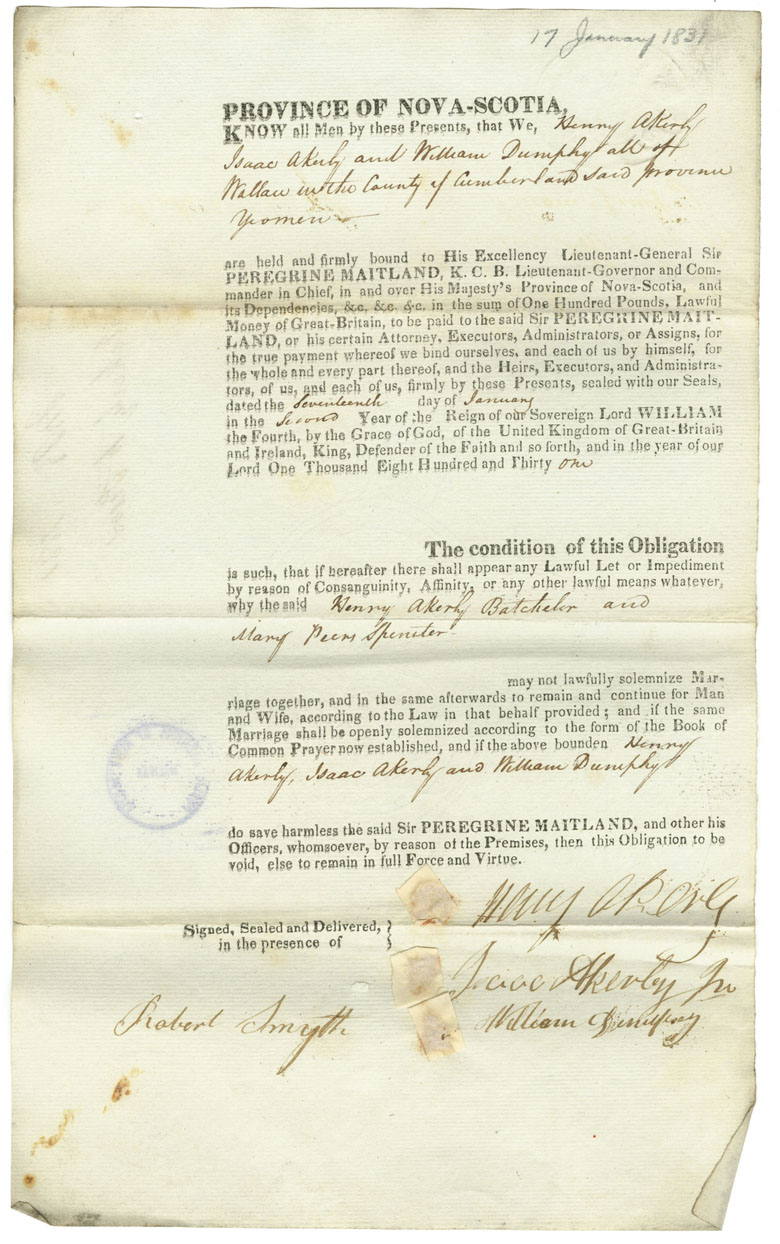 17 January 1831
PROVINCE OF NOVA-SCOTIA,
KNOW all Men by these Presents, that We, Henry Akerly
Isaac Akerly and William Dumphy all of
Wallace in the County of Cumberland said province
Yeomen
are held and firmly bound to His Excellency Lieutenant-General Sir
PEREGRINE MAITLAND, K. C. B. Lieutenant-Governor and Com-
mander in Chief, in and over His Majesty's Province of Nova-Scotia, and
its Dependencies, &c. &c. &c. in the sum of One Hundred Pounds, Lawful
Money of Great-Britain, to be paid to the said Sir PEREGRINE MAIT-
LAND, or his certain Attorney, Executors, Administrators, or Assigns, for
the true payment whereof we bind ourselves, and each of us by himself, for
the whole and every part thereof, and the Heirs, Executors, and Administra-
tors, of us, and each of us, firmly by these Presents, sealed with our Seals,
dated the Seventeenth day of January
in the Second Year of the Reign of our Sovereign Lord WILLIAM
the Fourth, by the Grace of God, of the United Kingdom of Great-Britain
and Ireland, King, Defender of the Faith and so forth, and in the year of our
Lord One Thousand Eight Hundred and Thirty one
The condition of this Obligation
is such, that if hereafter there shall appear any Lawful Let or Impediment
by reason of Consanguinity, Affinity, or any other lawful means whatever,
why the said Henry Akerly Batchelor and
Mary Peers Spinster
may not lawfully solemnize Mar-
riage together, and in the same afterwards to remain and continue for Man
and Wife, according to the Law in that behalf provided; and if the same
Marriage shall be openly solemnized according to the form of the Book of
Common Prayer now established, and if the above bounden Henry
Akerly, Isaac Akerly and William Dumphy
do save harmless the said Sir PEREGRINE MAITLAND, and other his
Officers, whomsoever, by reason of the Premises, then this Obligation to be
void, else to remain in full Force and Virtue.
Henry Akerly
Signed, Sealed and Delivered,
in the presence of
Isaac Akerley Jr
Robert Smyth William Dumphy